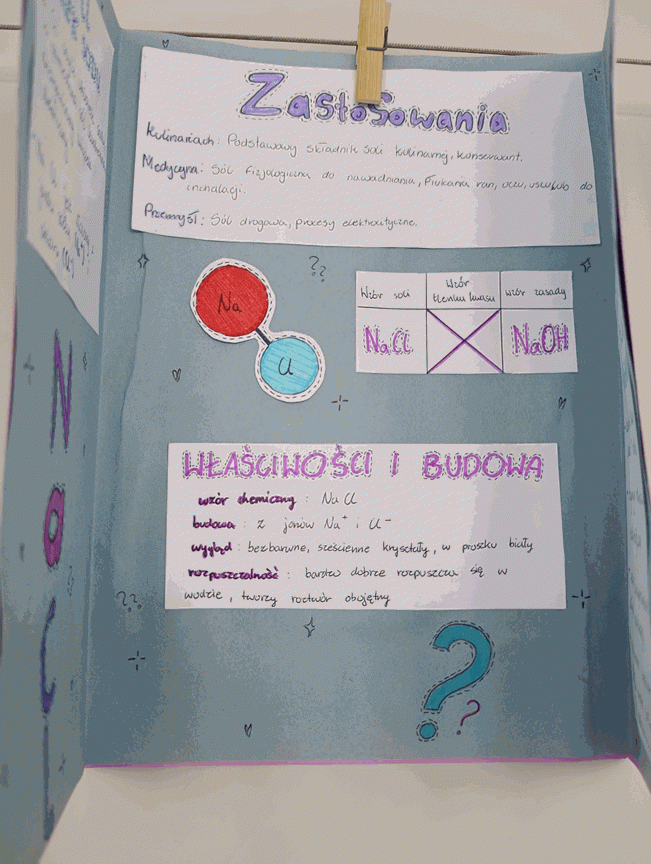 Zastosowania
Kulinariach: Podstawowy składnik soli kulinarnej, konserwant.
Medycyna: Sól fizjologiczna do nawadniania, płukania ran, oczu, uszu lub do
inchalacji.
Przemysł: Sól drogowa, procesy elektrolityczne.
Na
Cl
??
Wzór soli
Wzór
tlenku kwasu
wzór zasady
NaCl
NaOH
WŁAŚCIWOŚCI I BUDOWA
wzór chemiczny: NaCl
budowa: z jonów Na⁺ i Cl⁻
wygląd: bezbarwne, sześcienne kryształy, w proszku biały
rozpuszczalność: bardzo dobrze rozpuszcza się w
wodzie, tworzy roztwór obojętny
??
?
?
N
a
C
l